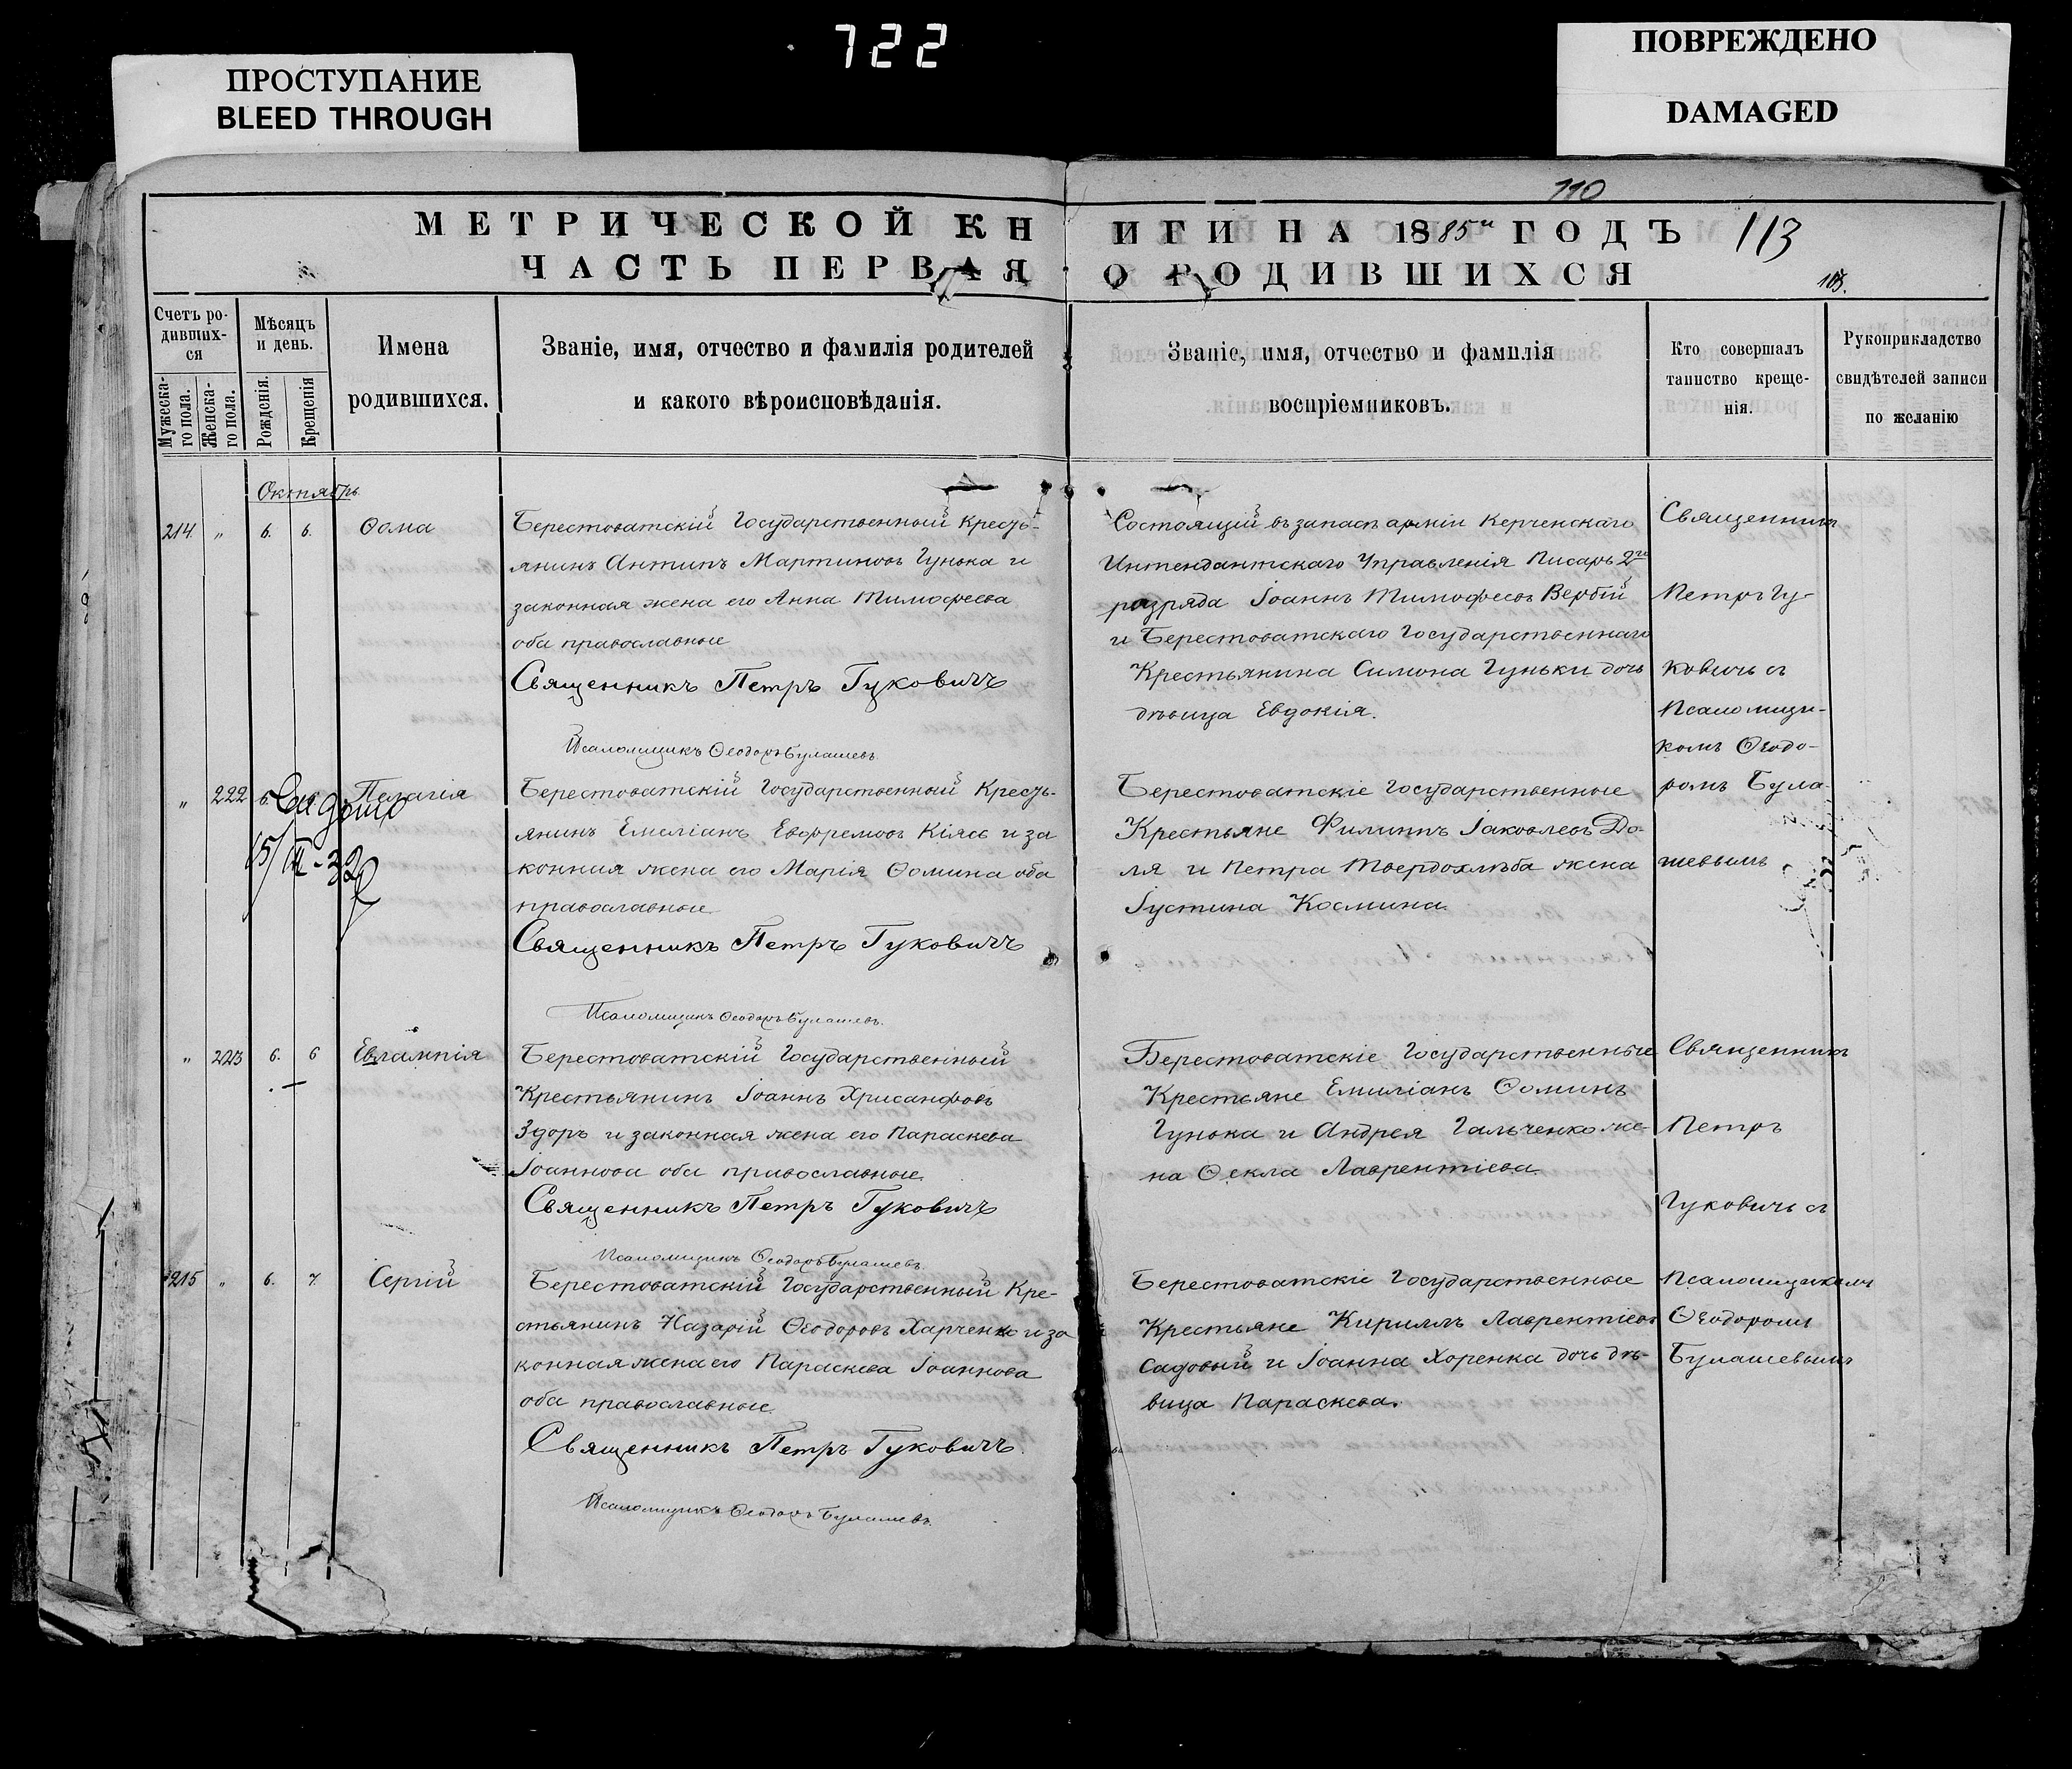 722
ПРОСТУПАНИЕ
BLEED THROUGH
ПОВРЕЖДЕНО
DAMAGED
110
МЕТРИЧЕСКОЙ КНИГИ НА 1885й ГОДЪ 113
ЧАСТЬ ПЕРВАЯ О РОДИВШИХСЯ
Счетъ ро-
дивших-
ся
Мужеска-
го пола.
Женска-
го пола.
Мѣсяцъ
и день.
Рожденія.
Крещенія
Имена
родившихся.
Званіе, имя, отчество и фамилія родителей
и какого вѣроисповѣданія.
Званіе, имя, отчество и фамилія
воспріемниковъ.
Кто совершалъ
таинство креще-
нія.
Рукоприкладство
свидѣтелей записи
по желанію
Октябрь.
214. " 6. 6. Ѳома
Берестоватскій Государственный Кресть-
янинъ Антипъ Мартиновъ Гунька и
законная жена его Анна Тимофеева
оба православные
Священникъ Петръ Гуковичъ
Псаломщикъ Ѳеодоръ Булашевъ.
Состоящій въ запасѣ арміи Керченскаго
Интендантскаго Управленія Писарь 2го
разряда Іоаннъ Тимофеевъ Вербій
и Берестоватскаго Государственнаго
Крестьянина Симона Гуньки дочь
дѣвица Евдокія.
Священникъ
Петръ Гу-
ковичь съ
Псаломщи-
комъ Ѳеодо-
ромъ Була-
шевымъ
" 222 6 Пелагія
15/III-32
Берестоватскій Государственный Кресть-
янинъ Емеліанъ Евфремовъ Кіясь и за
конная жена его Марія Ѳомина оба
православные
Священникъ Петръ Гуковичъ
Псаломщикъ Ѳеодоръ Булашевъ.
Берестоватскіе Государственные
Крестьяне Филиппъ Іаковлевъ До-
ля и Петра Твердохлѣба жена
Іустина Космина.
" 223 6. 6 Евлампія
Берестоватскій Государственный
Крестьянинъ Іоаннъ Хрисанфовъ
Здоръ и законная жена его Параскева
Іоаннова оба православные
Священникъ Петръ Гуковичъ
Псаломщикъ Ѳеодоръ Булашевъ.
Берестоватскіе Государственные
Крестьяне Емиліанъ Ѳоминъ
Гунька и Андрея Гальченко же-
на Ѳекла Лаврентіева
Священникъ
Петръ
Гуковичь съ
Псаломщикомъ
Ѳеодоромъ
Булашевымъ
215 " 6. 7. Сергій
Берестоватскій Государственный Кре-
стьянинъ Назарій Ѳеодоровъ Харченко и за
конная жена его Параскева Іоаннова
оба православные
Священникъ Петръ Гуковичъ.
Псаломщикъ Ѳеодоръ Булашевъ.
Берестоватскіе Государственные
Крестьяне Кириллъ Лаврентіевъ
Садовый и Іоанна Хоренка дочь дѣ-
вица Параскева.